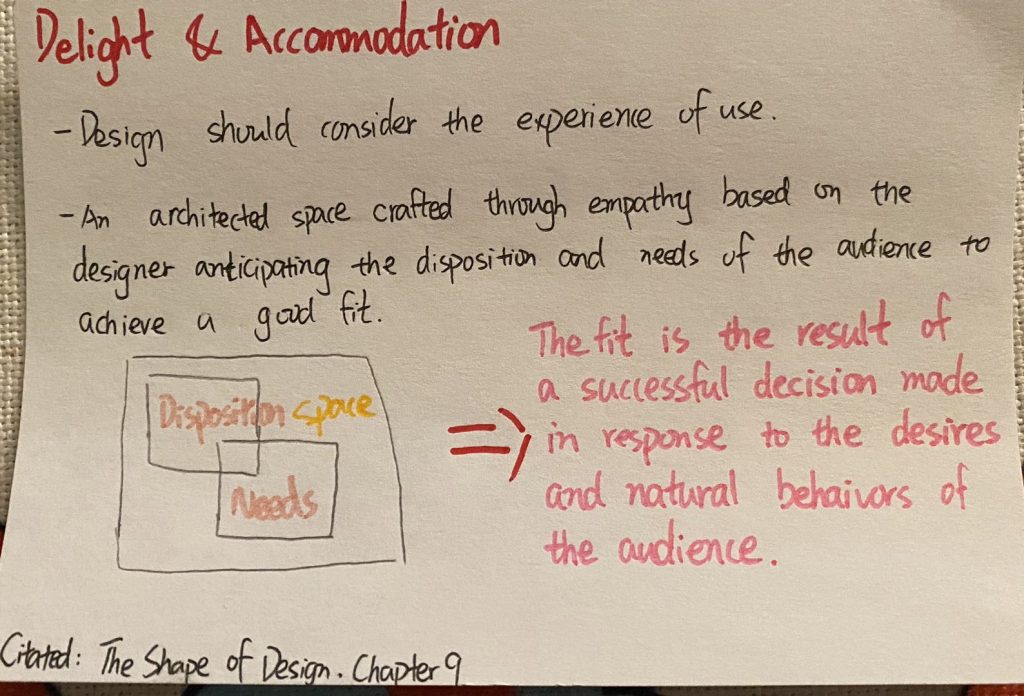 Delight & Accommodation
- Design should consider the experience of use.
- An architected space crafted through empathy based on the
designer anticipating the disposition and needs of the audience to
achieve a good fit.
Disposition space
Needs
=>
The fit is the result of
a successful decision made
in response to the desires
and natural behaivors of
the audience.
Citated: The Shape of Design. Chapter 9